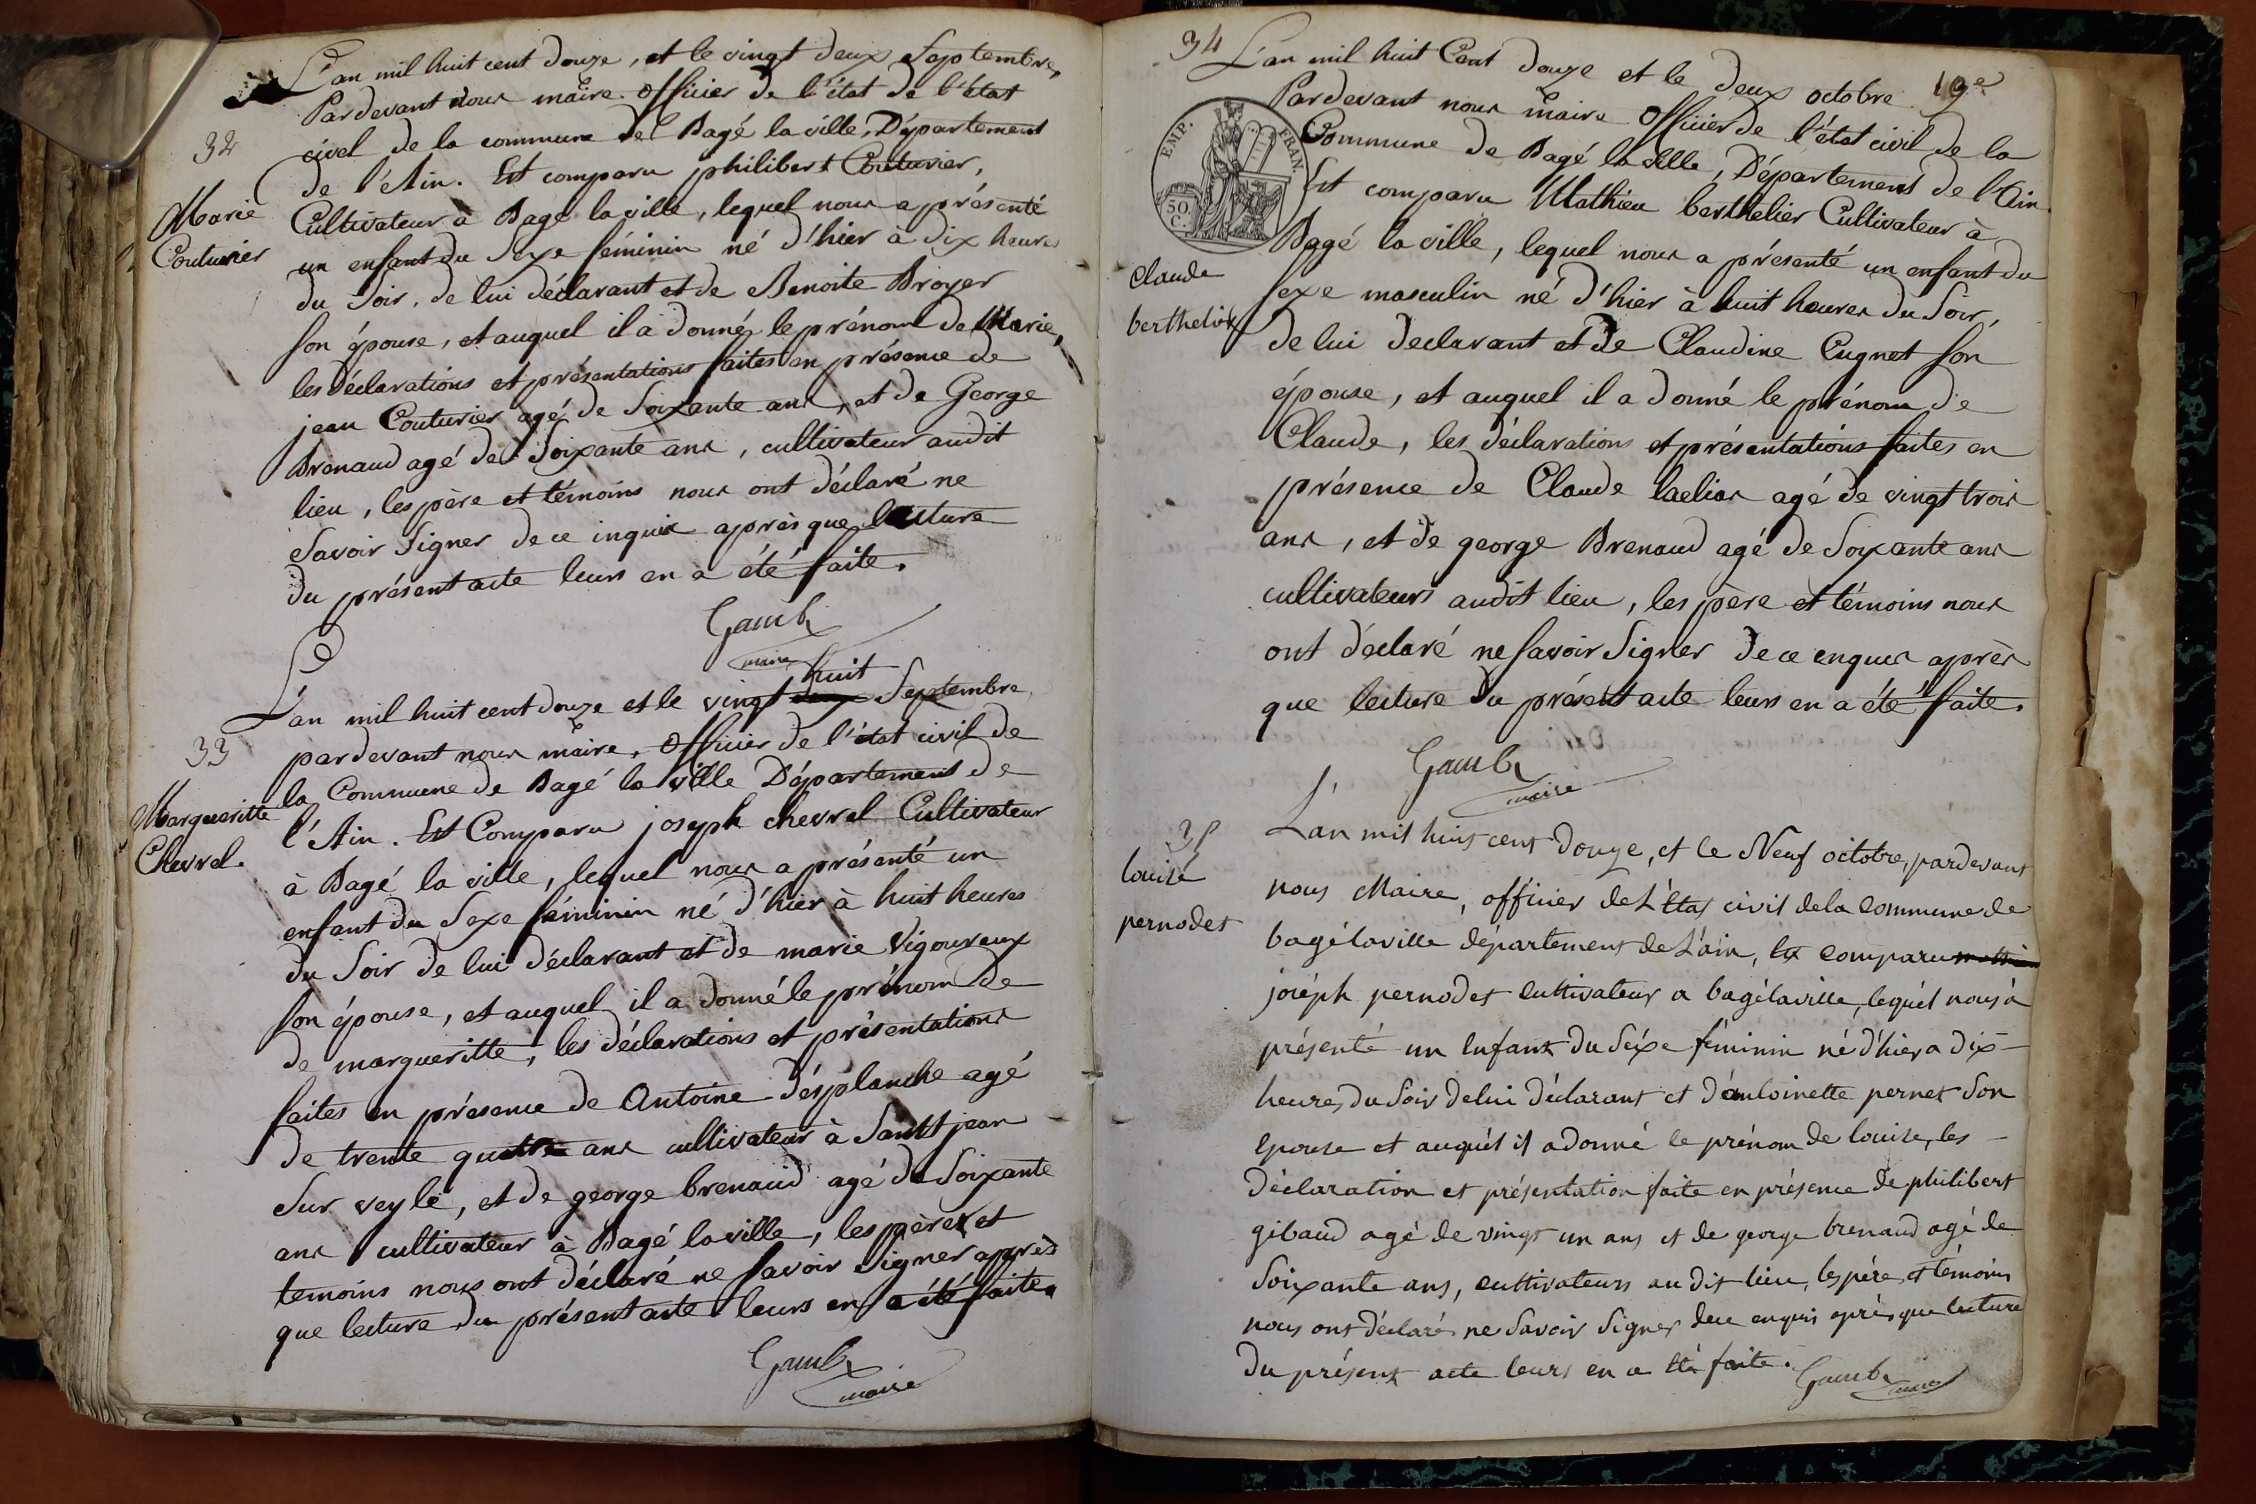 L'an mil huit cent douze, et le vingt deux Septembre,
Pardevant nous maire officier de l'état de l'état
civel de la commune de Bagé la ville, Département
de l'Ain. Est comparu philibert Couturier,
Cultivateur à Bagé la ville, lequel nous a présenté
un enfant du Sexe féminin né d'hier à dix heures
du Soir, de lui déclarant et de Benoite Broyer
Son épouse, et auquel il a donné le prénom de Marie,
les déclarations et présentations faites en présence de
jean Couturier agé de Soixante ans, et de George
Brenaud agé de Soixante ans, cultivateur audit
lieu, les père et témoins nous ont déclaré ne
Savoir Signer de ce inquis après que lecture
du présent acte leurs en a été faite.
Gamb
maire
32
Marie
Couturier
L'an mil huit cent douze et le vingt huit Septembre
pardevant nous maire, officier de l'état civil de
la Commune de Bagé la ville Département de
l'Ain. Est Comparu joseph chevrel Cultivateur
à Bagé la ville, lequel nous a présenté un
enfant du Sexe féminin né d'hier à huit heures
du Soir de lui déclarant et de marie Vigoureux
Son épouse, et auquel il a donné le prénom de
de margueritte, les déclarations et présentations
faites en présence de Antoine Désplanche agé
de trente quatre ans cultivateur à Saint jean
Sur veyle, et de george brenaud agé de Soixante
ans cultivateur à Bagé la ville, les pères et
temoins nous ont déclaré ne Savoir Signer après
que lecture du présent acte leurs en a été faite.
Gamb
maire
33
Margueritte
Chevrel.
34
19e
L'an mil huit Cent douze et le deux octobre
Pardevant nous maire officier de l'état civil de la
Commune de Bagé la ville, Département de l'Ain.
Est comparu Mathieu berthelier Cultivateur à
Bagé la ville, lequel nous a présenté un enfant du
Sexe masculin né d'hier à huit heures du Soir,
de lui declarant et de Claudine Cugnet Son
épouse, et auquel il a donné le prénom de
Claude, les déclarations et présentations faites en
présence de Claude laelias agé de vingt trois
ans, et de george Brenaud agé de Soixante ans
cultivateurs audit lieu, les père et témoins nous
ont déclaré ne Savoir Signer de ce enquis après
que lecture du présent acte leurs en a été faite.
Gamb
maire
EMP. FRAN.
50
C.
Claude
berthelier
L'an mil huit cent Douze, et le Neuf octobre, pardevant
nous Maire, officier de L'Etat civil de la commune de
bagé la ville département de L'ain, Est comparu
joséph pernodet cultivateur a bagé la ville, lequél nous à
présenté un Enfant du Séxe féminin né d'hier a dix
heures du Soir de lui déclarant et d'antoinette pernet Son
Epouse et auquél il a donné le prénom de louise, les
déclaration et présentation faite en présence de philibert
gibaud agé de vingt un ans et de george brenaud agé de
Soixante ans, cultivateurs au dit lieu, les pére et témoins
nous ont déclaré ne Savoir Signer de ce enquis après que lecture
du présent acte leurs en a été faite.
Gamb
maire
35
louise
pernodet